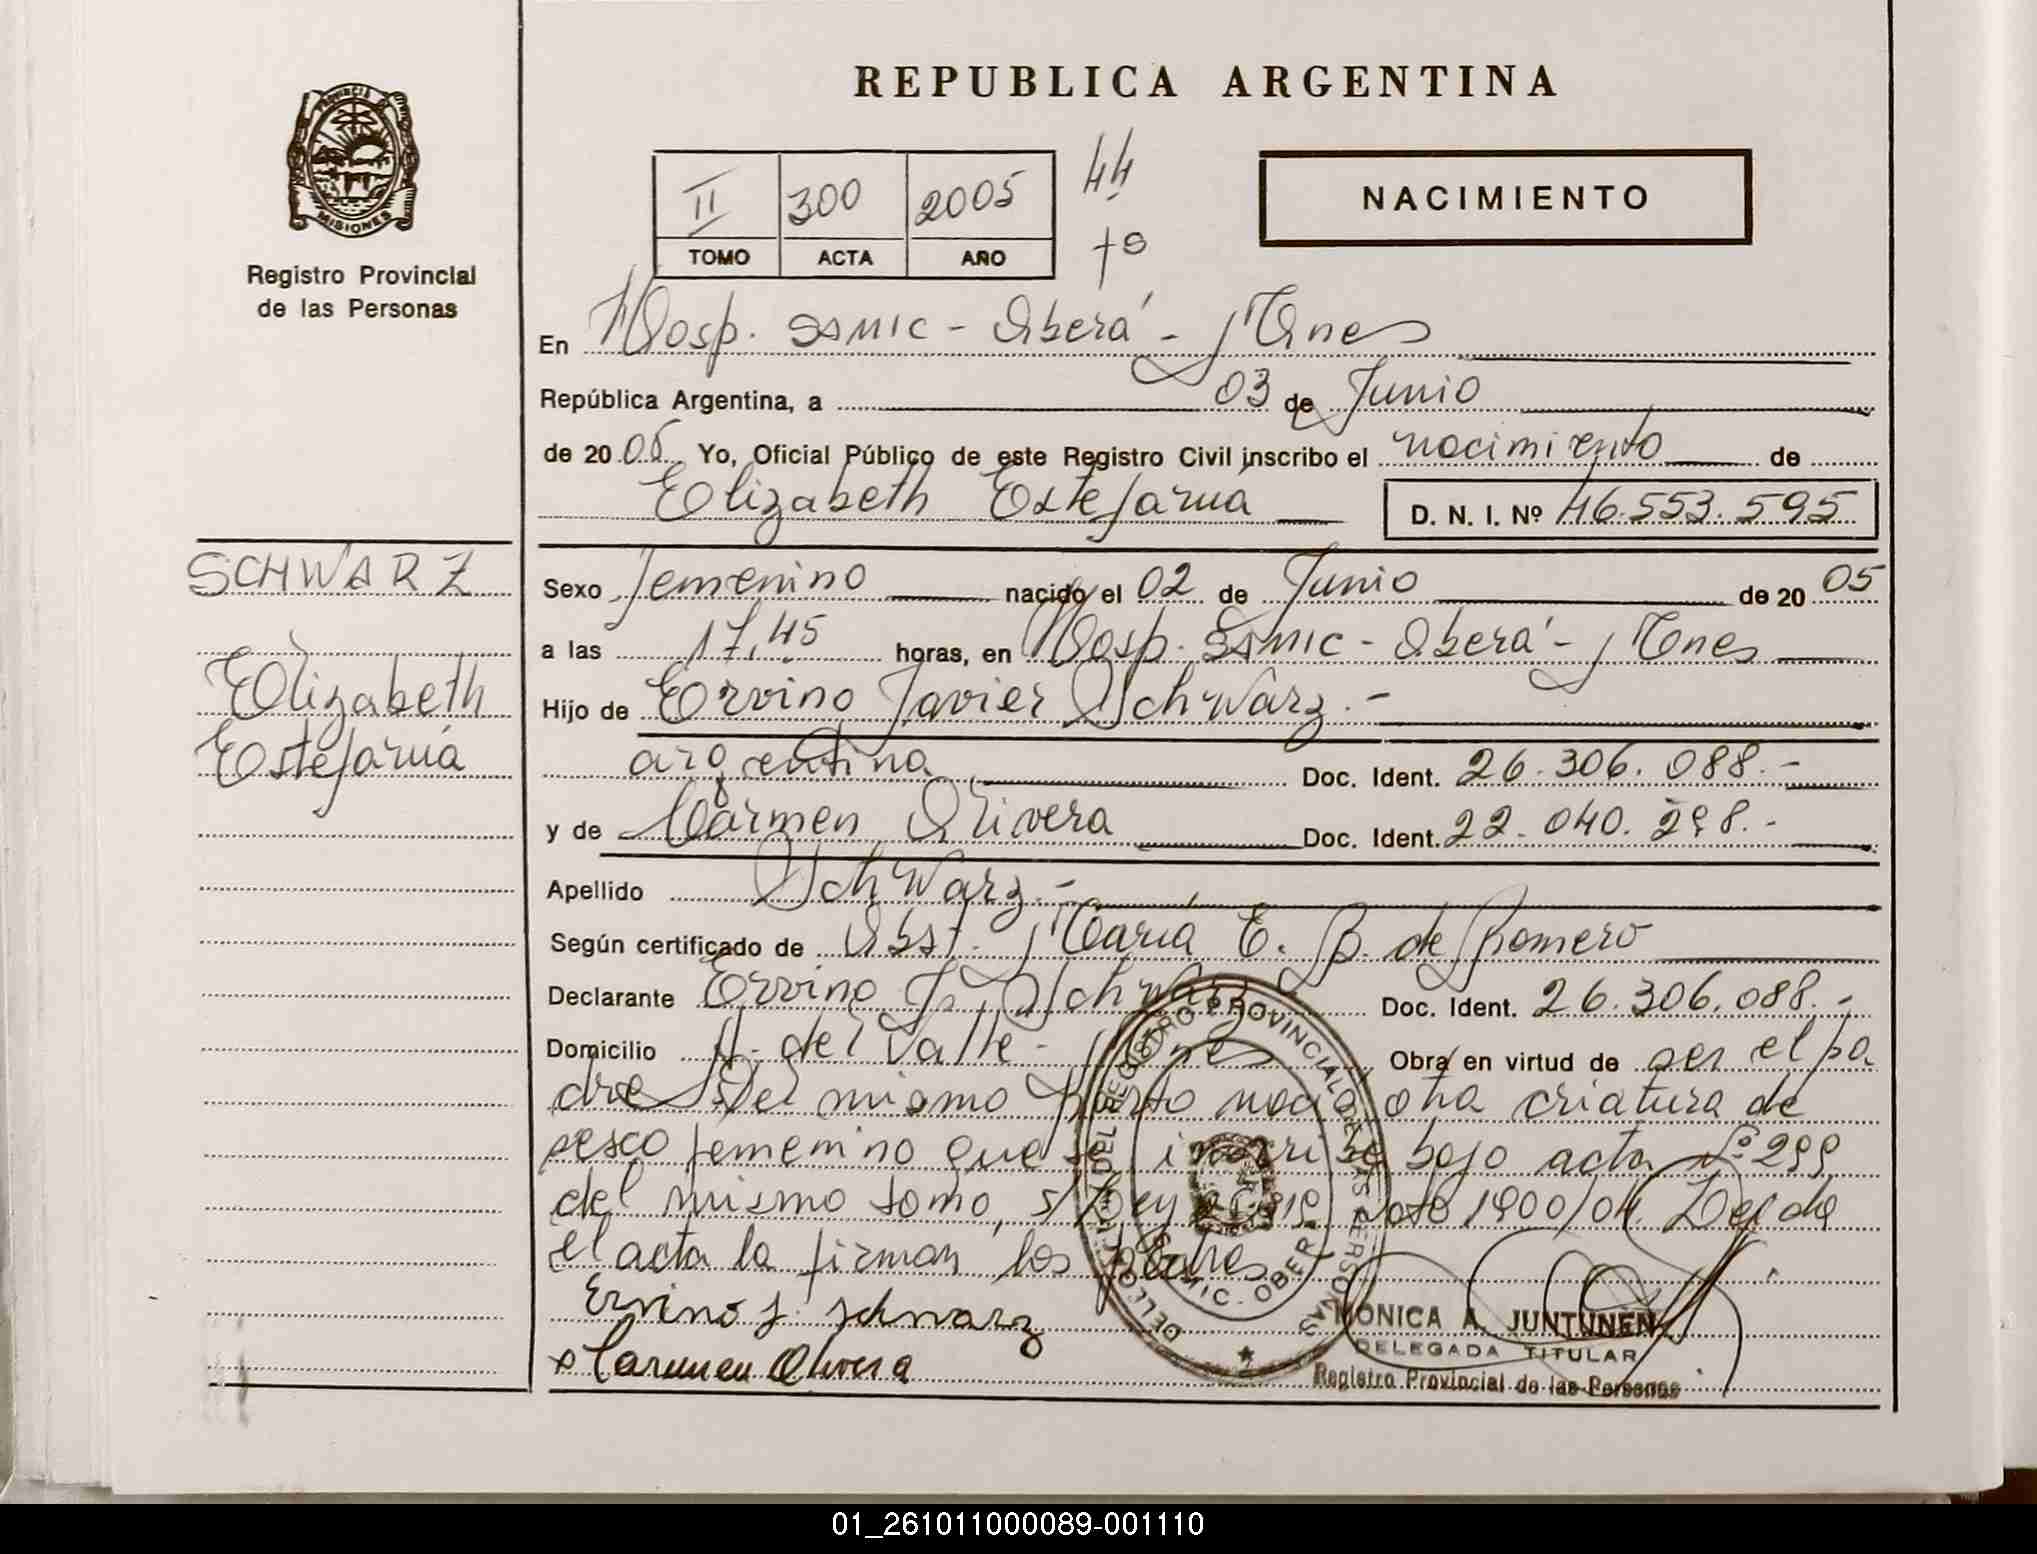 REPUBLICA ARGENTINA
PROVINCIA DE
MISIONES
Registro Provincial
de las Personas
II 300 2005
TOMO ACTA AÑO
44
NACIMIENTO
En Hosp. SAMIC - Oberá - Mnes
República Argentina, a 03 de Junio
de 20 05 Yo, Oficial Público de este Registro Civil inscribo el nacimiento de
Elizabeth Estefanía D. N. I. Nº 46.553.595
SCHWARZ
Elizabeth
Estefanía
Sexo femenino nacido el 02 de Junio de 20 05
a las 17,45 horas, en Hosp. SAMIC - Oberá - Mnes
Hijo de Ervino Javier Schwarz.-
argentina Doc. Ident. 26.306.088.-
y de Carmen Olivera Doc. Ident. 22.040.298.-
Apellido Schwarz.-
Según certificado de Obst. María E. B. de Romero
Declarante Ervino J. Schwarz Doc. Ident. 26.306.088.-
Domicilio A. del Valle - Mnes Obra en virtud de ser el pa
dre Del mismo parto nació otra criatura de
sexo femenino que se inscribe bajo acta Nº 299
del mismo tomo, s/Ley 1900/04. Dejo de
el acta la firman los padres
Ervino J. Schwarz
Carmen Olivera
DEL REGISTRO PROVINCIAL DE LAS PERSONAS
SAMIC - OBERA
MONICA A. JUNTUNEN
DELEGADA TITULAR
Registro Provincial de las Personas
01_261011000089-001110